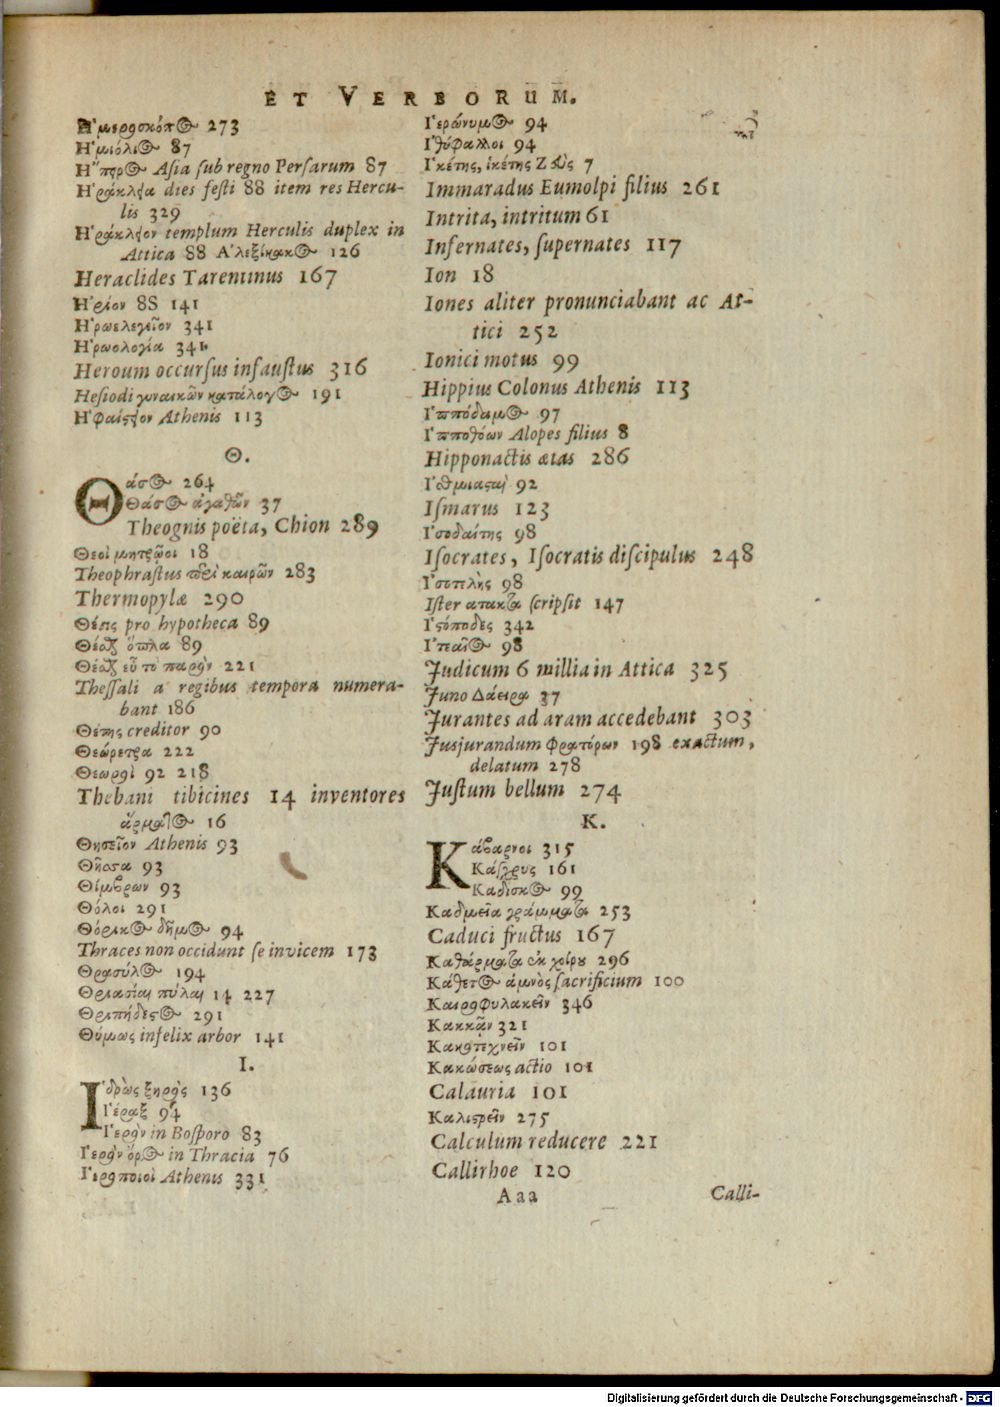 ET VERBORUM.
Ἡμεροσκόπος 273
Ἡμιόλιος 87
Ἤπειρος Asia sub regno Persarum 87
Ἡράκλεια dies festi 88 item res Hercu-
lis 329
Ἡράκλειον templum Herculis duplex in
Attica 88 Ἀλεξίκακος 126
Heraclides Tarentinus 167
Ἠρίον 88 141
Ἡρωελεγεῖον 341
Ἡρωολογία 341
Heroum occursus infaustus 316
Hesiodi γυναικῶν κατάλογος 191
Ἡφαίστειον Athenis 113
Θ.
Θάσος 264
Θάσος ἀγαθῶν 37
Theognis poëta, Chion 289
Θεοὶ μητρῷοι 18
Theophrastus περὶ καιρῶν 283
Thermopylæ 290
Θέσις pro hypotheca 89
Θέσθαι ὅπλα 89
Θέσθαι εὖ τὸ παρὸν 221
Thessali a regibus tempora numera-
bant 186
Θέτης creditor 90
Θεώρετρα 222
Θεωροὶ 92 218
Thebani tibicines 14 inventores
ἅρματος 16
Θησεῖον Athenis 93
Θῆσσα 93
Θίμβρων 93
Θόλοι 291
Θόρικος δῆμος 94
Thraces non occidunt se invicem 173
Θρασύλος 194
Θριασίαι πύλαι 14 227
Θριπήδεστος 291
Θύμος infelix arbor 141
I.
Ἱδρὼς ξηρὸς 136
Ἱέραξ 94
Ἱερὸν in Bosporo 83
Ἱερὸν ὄρος in Thracia 76
Ἱεροποιοὶ Athenis 331
Ἱερώνυμος 94
Ἰθύφαλλοι 94
Ἱκέτης, ἱκέτης Ζεὺς 7
Immaradus Eumolpi filius 261
Intrita, intritum 61
Infernates, supernates 117
Ion 18
Iones aliter pronunciabant ac At-
tici 252
Ionici motus 99
Hippius Colonus Athenis 113
Ἱππόδαμος 97
Ἱπποθόων Alopes filius 8
Hipponactis ætas 286
Ἰσθμιασταὶ 92
Ismarus 123
Ἰσοδαίτης 98
Isocrates, Isocratis discipulus 248
Ἰσοτελὴς 98
Ister ατακτα scripsit 147
Ἱστόποδες 342
Ἰτεαῖος 98
Judicum 6 millia in Attica 325
Juno Δάειρα 37
Jurantes ad aram accedebant 303
Jusjurandum φρατόρων 198 exactum,
delatum 278
Justum bellum 274
K.
Κάβαρνοι 315
Κάχρυς 161
Καδίσκος 99
Καδμεῖα γράμματα 253
Caduci fructus 167
Καθάρματα ἐκ χοίρου 296
Κάθετος ἀμνὸς sacrificium 100
Καιροφυλακεῖν 346
Κακκᾶν 321
Κακοτεχνεῖν 101
Κακώσεως actio 101
Calauria 101
Καλιστρεῖν 275
Calculum reducere 221
Callirhoe 120
Aaa Calli-
Digitalisierung gefördert durch die Deutsche Forschungsgemeinschaft - DFG